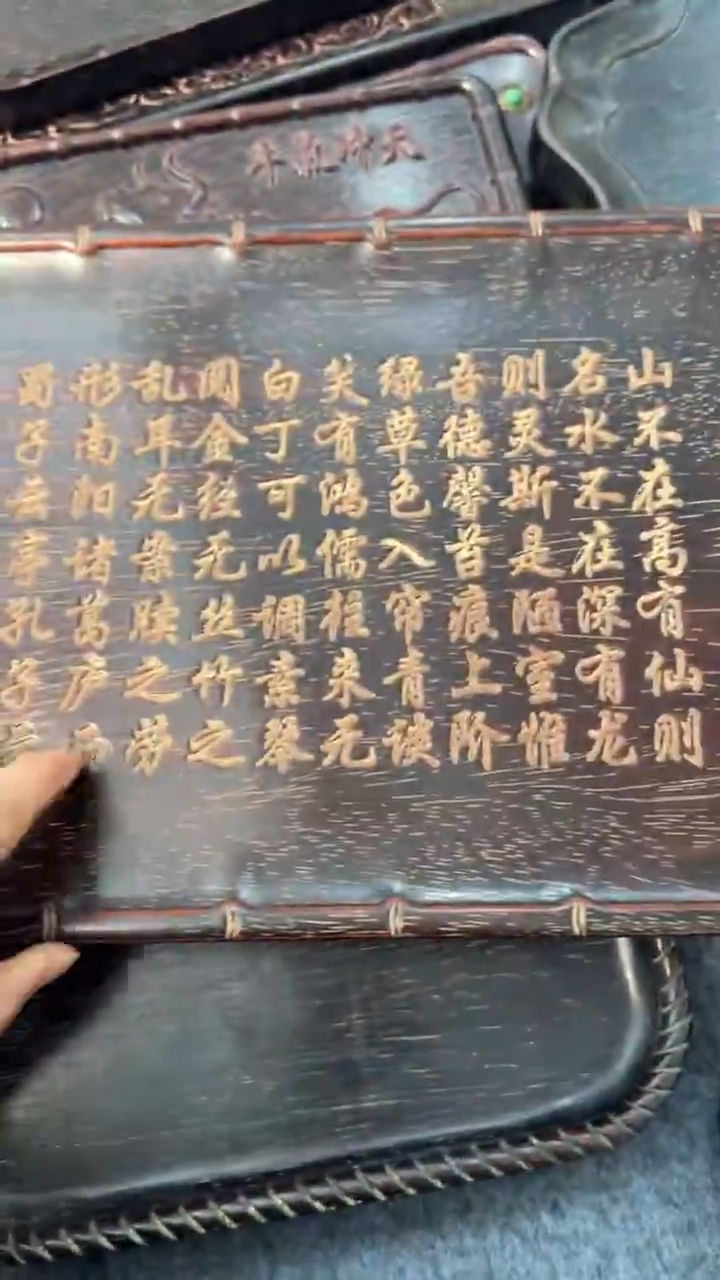 牛氣冲天
山不在高有仙则
名水不在深有龙
则灵斯是陋室惟
吾德馨苔痕上阶
绿草色入帘青谈
笑有鸿儒往来无
白丁可以调素琴
阅金经无丝竹之
乱耳无案牍之劳
形南阳诸葛庐西
蜀子云亭孔子